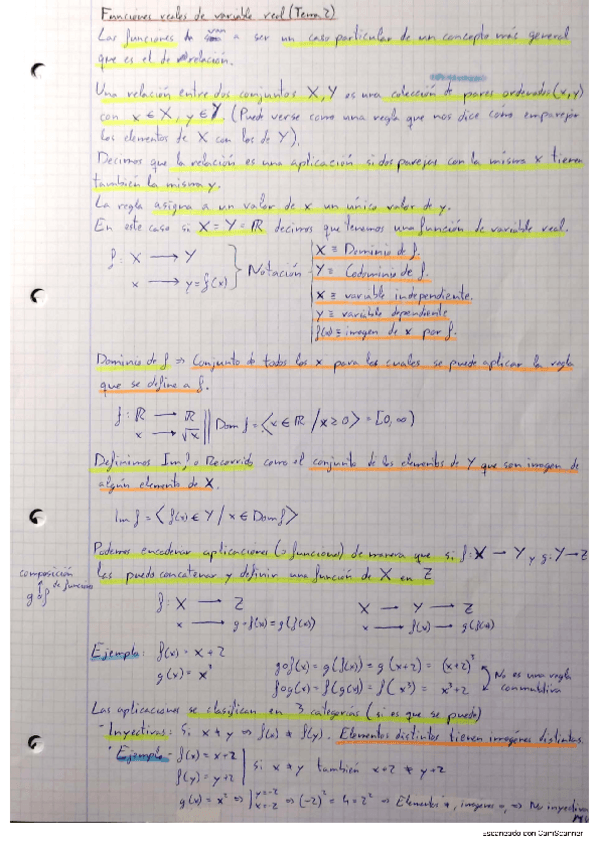 Funciones reales de variable real (Tema 2)
Las funciones de van a ser un caso particular de un concepto más general
que es el de relación.
Una relación entre dos conjuntos X, Y es una colección de pares ordenados (x,y)
con x ∈ X, y ∈ Y. (Puede verse como una regla que nos dice como emparejar
los elementos de X con los de Y).
Decimos que la relación es una aplicación si dos parejas con la misma x tienen
también la misma y.
La regla asigna a un valor de x un único valor de y.
En este caso si X = Y = ℝ decimos que tenemos una función de variable real.
f: X → Y
x → y = f(x)
Notación
X ≡ Dominio de f.
Y ≡ Codominio de f.
x ≡ variable independiente.
y ≡ variable dependiente
f(x) ≡ imagen de x por f.
Dominio de f ⇒ Conjunto de todos los x para los cuales se puede aplicar la regla
que se define a f.
f: ℝ → ℝ
x → √x || Dom f = <x ∈ ℝ / x ≥ 0> = [0, ∞)
Definimos Im f o Recorrido como el conjunto de los elementos de Y que son imagen de
algún elemento de X.
Im f = <f(x) ∈ Y / x ∈ Dom f>
Podemos encadenar aplicaciones (o funciones) de manera que si f: X → Y y g: Y → Z
las puedo concatenar y definir una función de X en Z
composición
de funciones
g o f
f: X → Z
x → g∘f(x) = g(f(x))
X → Y → Z
x → f(x) → g(f(x))
Ejemplo: f(x) = x + 2
g(x) = x³
gof(x) = g(f(x)) = g(x+2) = (x+2)³
fog(x) = f(g(x)) = f(x³) = x³+2
No es una regla
conmutativa
Las aplicaciones se clasifican en 3 categorías (si es que se puede)
- Inyectivas: Si x ≠ y ⇒ f(x) ≠ f(y). Elementos distintos tienen imagénes distintas.
· Ejemplo - f(x) = x+2
f(y) = y+2 | si x ≠ y también x+2 ≠ y+2
g(x) = x² ⇒ | y=-2 x=-2 ⇒ (-2)² = 4 = 2² ⇒ Elementos ≠, imagenes =, ⇒ No inyectiva
Escaneado con CamScanner